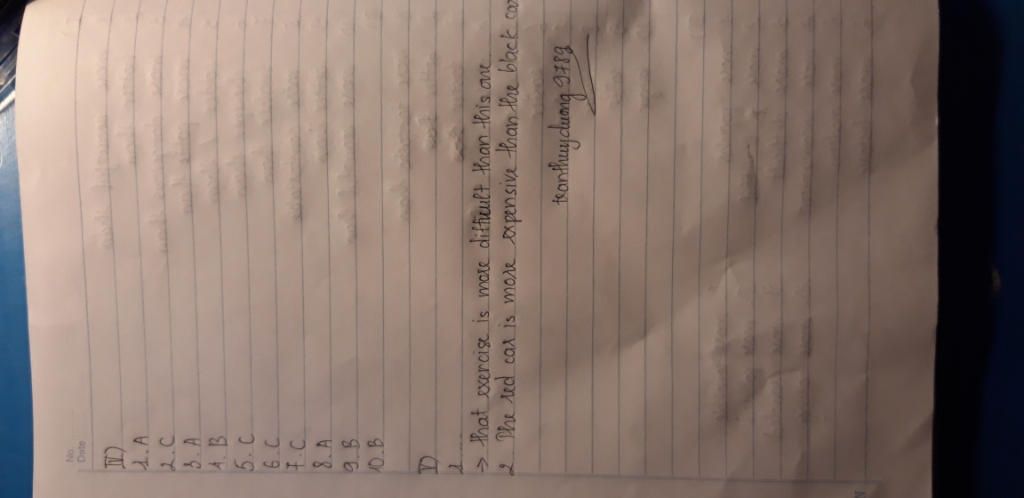 No.
Date
IV)
1. A
2. C
3. A
4. B
5. C
6. C
7. C
8. A
9. B
10. B
V)
1....
→ that exercise is more difficult than this one
2. The red car is more expensive than the black car
tranthuyduong2789